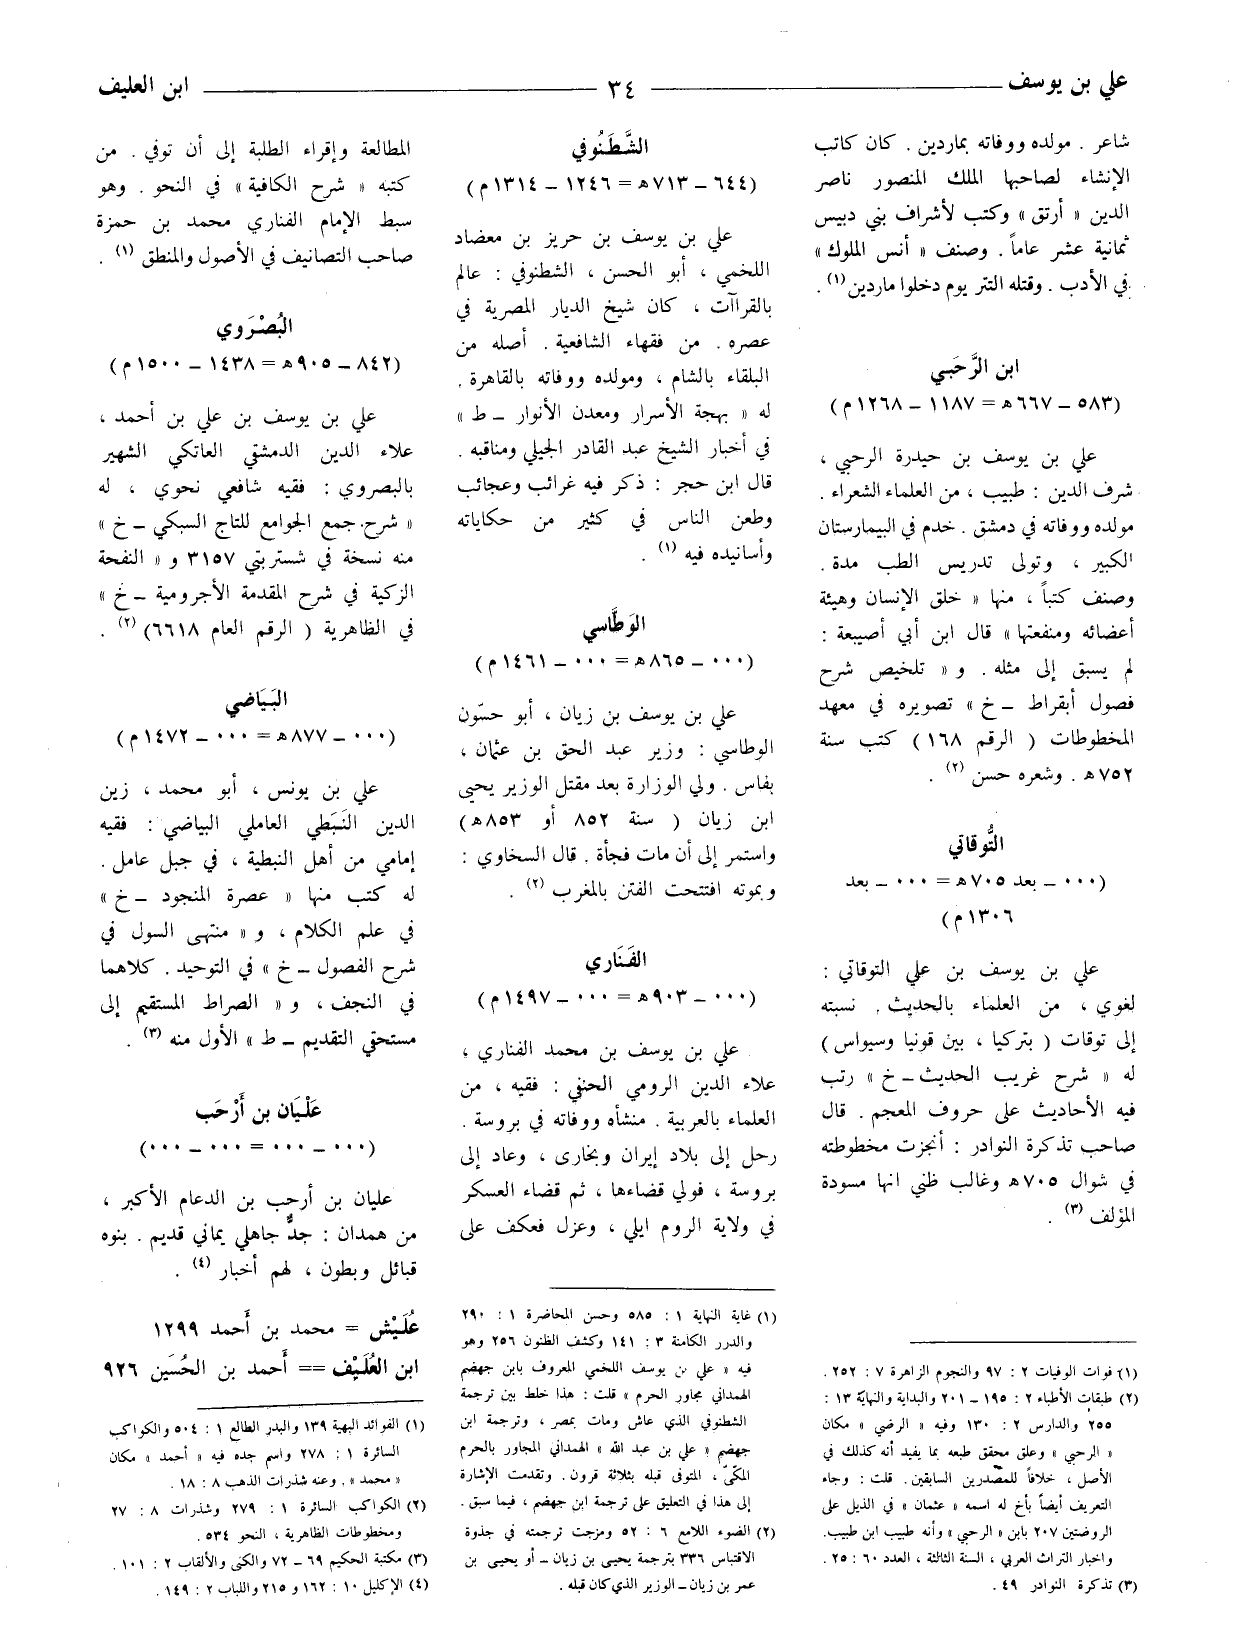 علي بن يوسف
٣٤
ابن العليف
شاعر . مولده ووفاته بماردين . كان كاتب
الإنشاء لصاحبها الملك المنصور ناصر
الدين « أرتق » وكتب لأشراف بني دبيس
ثمانية عشر عاماً . وصنف « أنس الملوك »
في الأدب . وقتله التتر يوم دخلوا ماردين (١) .
ابن الرَّحَبي
(٥٨٣ ـ ٦٦٧ هـ = ١١٨٧ ـ ١٢٦٨ م)
علي بن يوسف بن حيدرة الرحبي ،
شرف الدين : طبيب ، من العلماء الشعراء .
مولده ووفاته في دمشق . خدم في البيمارستان
الكبير ، وتولى تدريس الطب مدة .
وصنف كتباً ، منها « خلق الإنسان وهيئة
أعضائه ومنفعتها » قال ابن أبي أصيبعة :
لم يسبق إلى مثله . و « تلخيص شرح
فصول أبقراط ـ خ » تصويره في معهد
المخطوطات ( الرقم ١٦٨ ) كتب سنة
٧٥٢ هـ . وشعره حسن (٢) .
التُّوقاتي
(٠٠٠ ـ بعد ٧٠٥ هـ = ٠٠٠ ـ بعد
١٣٠٦ م)
علي بن يوسف بن علي التوقاتي :
لغوي ، من العلماء بالحديث . نسبته
إلى توقات ( بتركيا ، بين قونيا وسيواس )
له « شرح غريب الحديث ـ خ » رتب
فيه الأحاديث على حروف المعجم . قال
صاحب تذكرة النوادر : أنجزت مخطوطته
في شوال ٧٠٥ هـ وغالب ظني انها مسودة
المؤلف (٣) .
(١) فوات الوفيات ٢ : ٩٧ والنجوم الزاهرة ٧ : ٢٥٢ .
(٢) طبقات الأطباء ٢ : ١٩٥ ـ ٢٠١ والبداية والنهاية ١٣ :
٢٥٥ والدارس ٢ : ١٣٠ وفيه « الرضي » مكان
« الرحبي » وعلق محقق طبعه بما يفيد أنه كذلك في
الأصل ، خلافاً للمصدرين السابقين . قلت : وجاء
التعريف أيضاً بأخ له اسمه « عثمان » في الذيل على
الروضتين ٢٠٧ بابن « الرحبي » وأنه طبيب ابن طبيب.
واخبار التراث العربي ، السنة الثالثة ، العدد ٦٠ : ٢٥ .
(٣) تذكرة النوادر ٤٩ .
الشَّطَنُوفي
(٦٤٤ ـ ٧١٣ هـ = ١٢٤٦ ـ ١٣١٤ م)
علي بن يوسف بن حريز بن معضاد
اللخمي ، أبو الحسن ، الشطنوفي : عالم
بالقراآت ، كان شيخ الديار المصرية في
عصره . من فقهاء الشافعية . أصله من
البلقاء بالشام ، ومولده ووفاته بالقاهرة .
له « بهجة الأسرار ومعدن الأنوار ـ ط »
في أخبار الشيخ عبد القادر الجيلي ومناقبه .
قال ابن حجر : ذكر فيه غرائب وعجائب
وطعن الناس في كثير من حكاياته
وأسانيده فيه (١) .
الوَطَّاسي
(٠٠٠ ـ ٨٦٥ هـ = ٠٠٠ ـ ١٤٦١ م)
علي بن يوسف بن زيان ، أبو حسّون
الوطاسي : وزير عبد الحق بن عثمان ،
بفاس . ولي الوزارة بعد مقتل الوزير يحيى
ابن زيان ( سنة ٨٥٢ أو ٨٥٣ هـ )
واستمر إلى أن مات فجأة . قال السخاوي :
وبموته افتتحت الفتن بالمغرب (٢) .
الفَنَاري
(٠٠٠ ـ ٩٠٣ هـ = ٠٠٠ ـ ١٤٩٧ م)
علي بن يوسف بن محمد الفناري ،
علاء الدين الرومي الحنفي : فقيه ، من
العلماء بالعربية . منشأه ووفاته في بروسة .
رحل إلى بلاد إيران وبخارى ، وعاد إلى
بروسة ، فولي قضاءها ، ثم قضاء العسكر
في ولاية الروم ايلي ، وعزل فعكف على
(١) غاية النهاية ١ : ٥٨٥ وحسن المحاضرة ١ : ٢٩٠
والدرر الكامنة ٣ : ١٤١ وكشف الظنون ٢٥٦ وهو
فيه « علي بن يوسف اللخمي المعروف بابن جهضم
الهمداني مجاور الحرم » قلت : هذا خلط بين ترجمة
الشطنوفي الذي عاش ومات بمصر ، وترجمة ابن
جهضم « علي بن عبد الله » الهمداني المجاور بالحرم
المكّي ، المتوفى قبله بثلاثة قرون . وتقدمت الإشارة
إلى هذا في التعليق على ترجمة ابن جهضم ، فيما سبق .
(٢) الضوء اللامع ٦ : ٥٢ ومزجت ترجمته في جذوة
الاقتباس ٣٣٦ بترجمة يحيى بن زيان ـ أو يحيى بن
عمر بن زيان ـ الوزير الذي كان قبله .
المطالعة وإقراء الطلبة إلى أن توفي . من
كتبه « شرح الكافية » في النحو . وهو
سبط الإمام الفناري محمد بن حمزة
صاحب التصانيف في الأصول والمنطق (١) .
البُصْرَوي
(٨٤٢ ـ ٩٠٥ هـ = ١٤٣٨ ـ ١٥٠٠ م)
علي بن يوسف بن علي بن أحمد ،
علاء الدين الدمشقي العاتكي الشهير
بالبصروي : فقيه شافعي نحوي ، له
« شرح جمع الجوامع للتاج السبكي ـ خ »
منه نسخة في شستربتي ٣١٥٧ و « النفحة
الزكية في شرح المقدمة الأجرومية ـ خ »
في الظاهرية ( الرقم العام ٦٦١٨ ) (٢) .
البَيَاضي
(٠٠٠ ـ ٨٧٧ هـ = ٠٠٠ ـ ١٤٧٢ م)
علي بن يونس ، أبو محمد ، زين
الدين النَبَطي العاملي البياضي : فقيه
إمامي من أهل النبطية ، في جبل عامل .
له كتب منها « عصرة المنجود ـ خ »
في علم الكلام ، و « منتهى السول في
شرح الفصول ـ خ » في التوحيد . كلاهما
في النجف ، و « الصراط المستقيم إلى
مستحقي التقديم ـ ط » الأول منه (٣) .
عَلْيَان بن أَرْحَب
(٠٠٠ ـ ٠٠٠ = ٠٠٠ ـ ٠٠٠)
عليان بن أرحب بن الدعام الأكبر ،
من همدان : جدٌّ جاهلي يماني قديم . بنوه
قبائل وبطون ، لهم أخبار (٤) .
عُلَيْش = محمد بن أَحمد ١٢٩٩
ابن العُلَيْف == أَحمد بن الحُسَين ٩٢٦
(١) الفوائد البهية ١٣٩ والبدر الطالع ١ : ٥٠٤ والكواكب
السائرة ١ : ٢٧٨ واسم جده فيه « أحمد » مكان
« محمد » . وعنه شذرات الذهب ٨ : ١٨ .
(٢) الكواكب السائرة ١ : ٢٧٩ وشذرات ٨ : ٢٧
ومخطوطات الظاهرية ، النحو ٥٣٤ .
(٣) مكتبة الحكيم ٦٩ ـ ٧٢ والكنى والألقاب ٢ : ١٠١ .
(٤) الإكليل ١٠ : ١٦٢ و ٢١٥ واللباب ٢ : ١٤٩ .